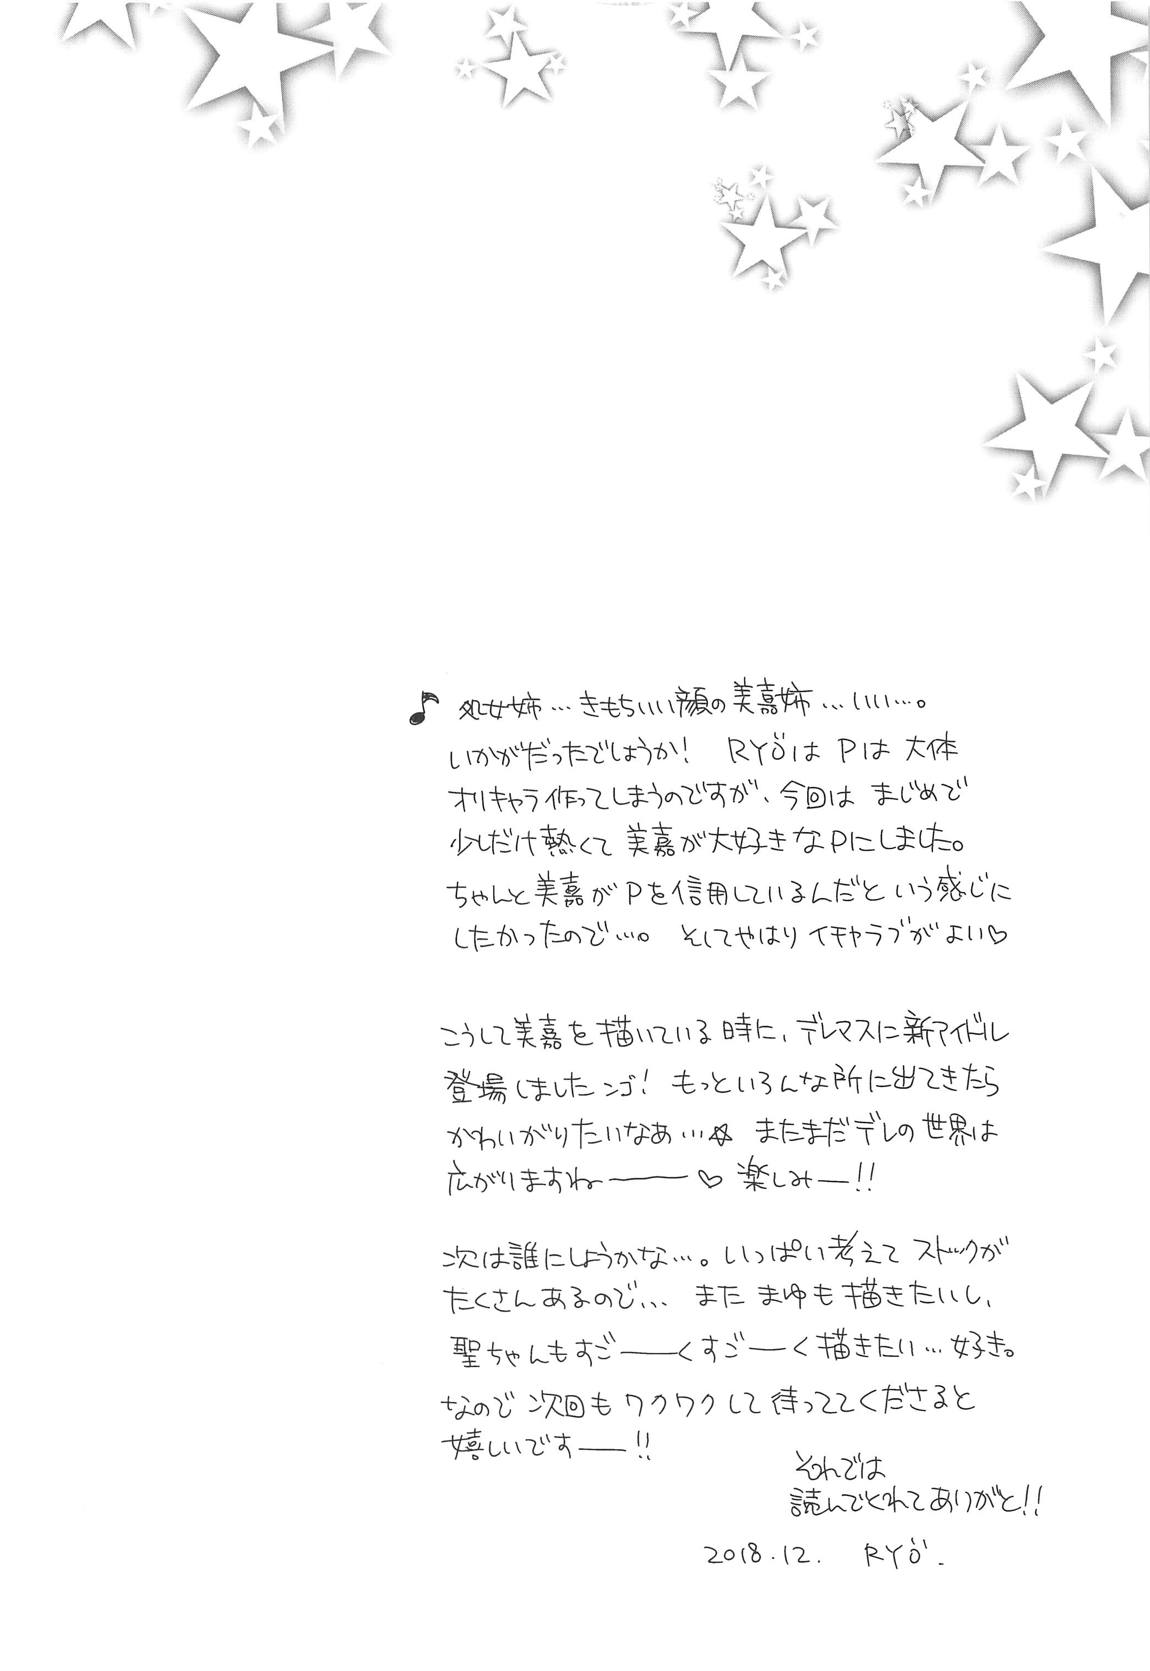 ♪ 処女姉…きもちいい顔の美嘉姉…いい…。
いかがだったでしょうか! RYÖは Pは 大体
オリキャラ作ってしまうのですが、今回は まじめで
少しだけ熱くて 美嘉が大好きなPにしました。
ちゃんと美嘉がPを信用しているんだという感じに
したかったので…。 そしてやはりイチャラブがよい♡
こうして美嘉を描いている時に、デレマスに新アイドル
登場しましたンゴ! もっといろんな所に出てきたら
かわいがりたいなあ…☆ まだまだデレの世界は
広がりますねー♡ 楽しみー!!
次は誰にしようかな…。いっぱい考えてストックが
たくさんあるので… また まゆも描きたいし、
聖ちゃんもすごーくすごーく描きたい…好き。
なので 次回もワクワクして待っててくださると
嬉しいですー!!
それでは
読んでくれてありがと!!
2018.12. RYÖ.